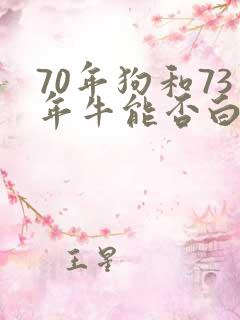 70年狗和73
年牛能否白
王星